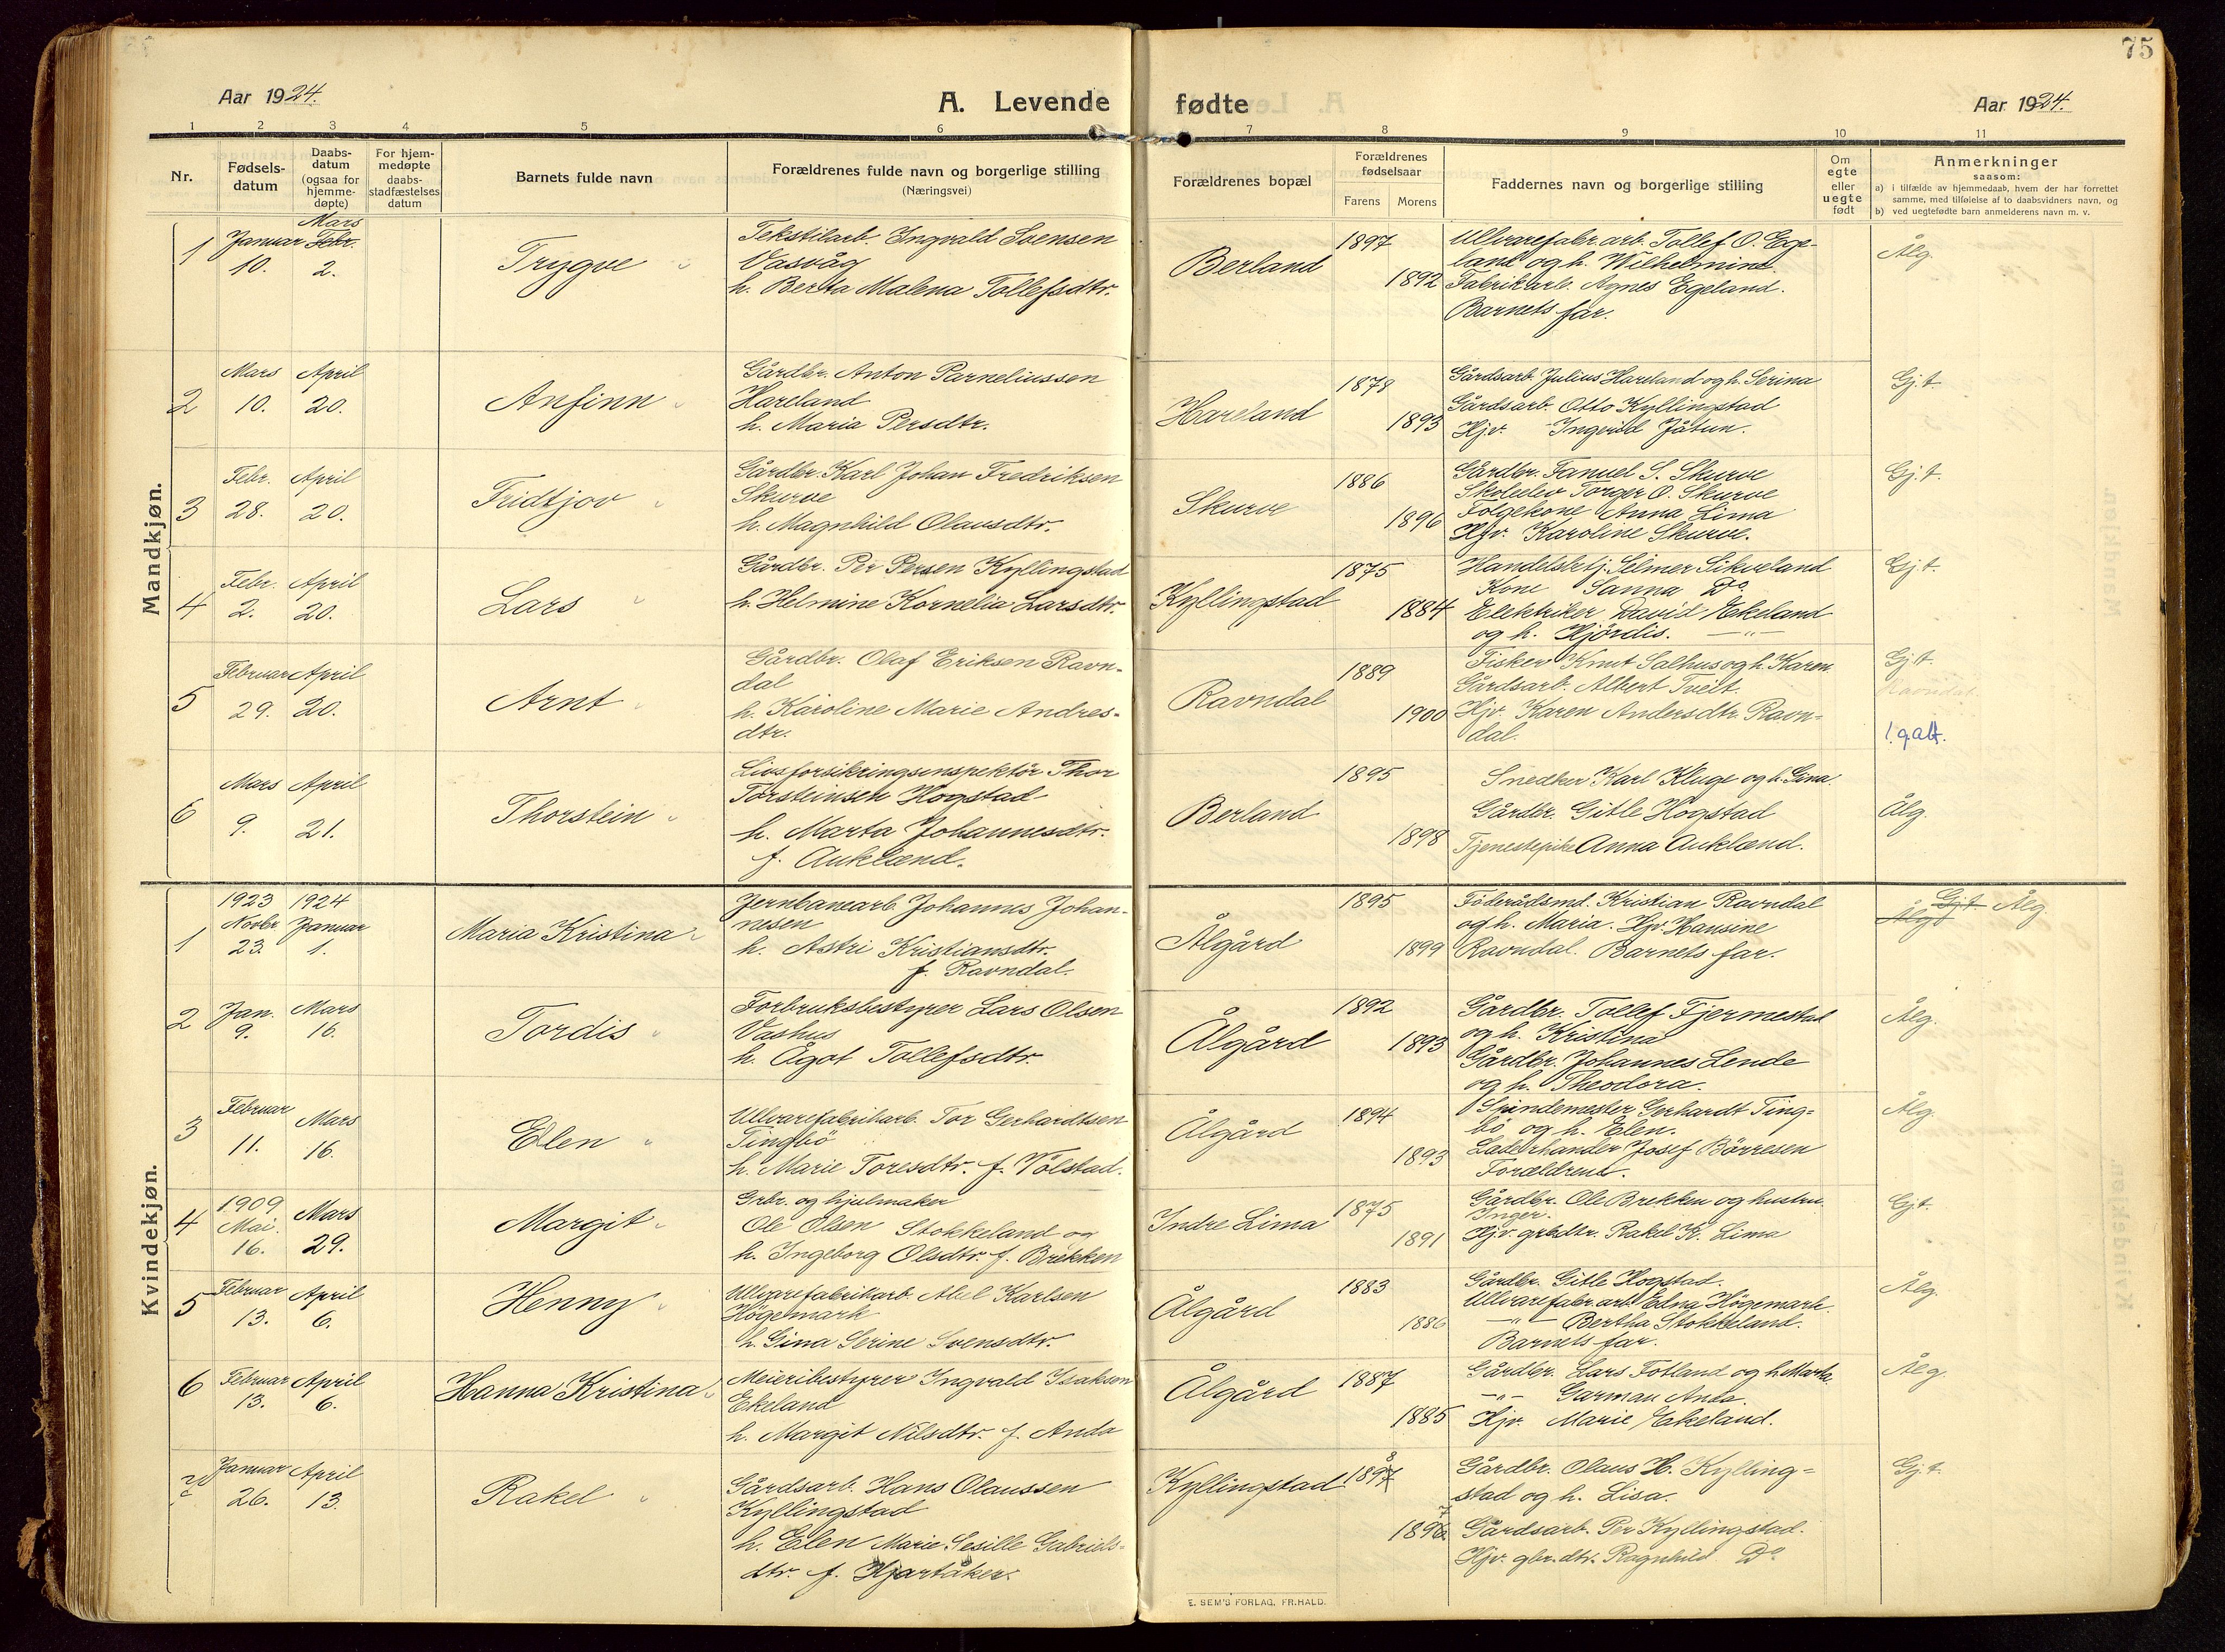 75
Aar 1924.
A. Levende fødte
Aar 1924.
1 2 3 4 5 6 7 8 9 10 11
Nr.
Fødsels-
datum
Daabs-
datum
(ogsaa for
hjemme-
døpte)
For hjem-
medøpte
daabs-
stadfæstelses
datum
Barnets fulde navn
Forældrenes fulde navn og borgerlige stilling
(Næringsvei)
Forældrenes bopæl
Forældrenes
fødselsaar
Farens Morens
Faddernes navn og borgerlige stilling
Om
egte
eller
uegte
født
Anmerkninger
saasom:
a) i tilfælde av hjemmedaab, hvem der har forrettet
samme, med tilføielse af to daabsvidners navn, og
b) ved uegtefødte barn anmelderens navn m. v.
Mandkjøn.
1
Januar
10.
Mars
Febr.
2.
Trygve
Tekstilarb. Ingvald Svensen
Vasvåg
h. Berta Malena Tollefsdtr.
Berland
1897
1892
Ullvarefabr.arb. Tollef O. Ege-
land og h. Wilhelmine.
Fabrikarb. Agnes Egeland.
Barnets far.
Ålg.
2
Mars
10.
April
20.
Anfinn
Gårdbr. Anton Parneliussen
Hareland
h. Maria Persdtr.
Hareland
1878
1893
Gårdsarb. Julius Hareland og h. Serina
Gårdsarb. Otto Kyllingstad
Hjv. Ingvild Jåtun.
Gj.t.
3
Febr.
28.
April
20.
Fridtjov
Gårdbr. Karl Johan Fredriksen
Skurve
h. Magnhild Olausdtr.
Skurve
1886
1896
Gårdbr. Fanuel S. Skurve
Skoleelev Torger O. Skurve
Følgekone Anna Lima
Hjv. Karoline Skurve.
Gj.t.
4
Febr.
2.
April
20.
Lars
Gårdbr. Per Persen Kyllingstad
h. Helmine Kornelia Larsdtr.
Kyllingstad
1875
1884
Handelsbetj. Selmer Sikveland
Kone Sanna Do
Elektriker David Ekeland
og h. Hjördis. — " —
Gj.t.
5
Februar
29.
April
20.
Arnt
Gårdbr. Olaf Eriksen Ravn-
dal
h. Karoline Marie Andres-
dtr.
Ravndal
1889
1900
Fisker Knut Salhus og h. Karen
Gårdsarb. Albert Tveit.
Hjv. Karen Andersdtr. Ravn-
dal.
Gj.t.
Ravndal.
6
Mars
9.
April
21.
Thorstein
Livsforsikringsinspektör Thor
Torsteinsen Hogstad
h. Marta Johannesdtr.
f. Aukland.
Berland
1895
1898
Snedker Karl Kluge og h. Gina.
Gårdbr. Gitle Hogstad
Tjenestepike Anna Aukland.
Ålg.
Kvindekjøn.
1
1923
Novbr.
23.
1924
Januar
1.
Maria Kristina
Jernbanearb. Johannes Johan-
nesen
h. Astri Kristiansdtr.
f. Ravndal.
Ålgård
1895
1899
Föderådsmd. Kristian Ravndal
og h. Maria. Hjv. Hansine
Ravndal. Barnets far.
Ålg. Gj.t. Ålg.
2
Jan.
9.
Mars
16.
Tordis
Forbruksbestyrer Lars Olsen
Vashus
h. Ågot Tollefsdtr.
Ålgård
1892
1893
Gårdbr. Tollef Fjermestad
og h. Kristina
Gårdbr. Johannes Lende
og h. Theodora.
Ålg.
3
Februar
11.
Mars
16.
Elen
Ullvarefabrikarb. Tor Gerhardtsen
Tingbö
h. Marie Toresdtr. f. Volstad.
Ålgård
1894
1893
Spindemester Gerhardt Ting=
bö og h. Elen.
Läderhandler Josef Börresen
Forældrene.
Ålg.
4
1909
Mai.
16.
Mars
29.
Margit
Grbr. og hjulmaker
Ole Olsen Stokkeland og
h. Ingeborg Olsdtr. f. Brekken
Indre Lima
1875
1891
Gårdbr. Ole Brekken og hustru
Inger.
Hjv. grbdtr. Rakel K. Lima
Gj.t.
5
Februar
13.
April
6.
Henny
Ullvarefabrikarb. Abel Karlsen
Högemark
h. Gina Serine Svensdtr.
Ålgård
1883
1886
Gårdbr. Gitle Hogstad.
Ullvarefabr.arb. Edna Högemark.
— " — Bertha Stokkeland.
Barnets far.
Ålg.
6
Februar
13.
April
6.
Hanna Kristina
Meieribestyrer Ingvald Isaksen
Ekeland
h. Margit Nilsdtr. f. Anda
Ålgård
1887
1885
Gårdbr. Lars Fotland og h. Marta.
— " — Garman Anda.
Hjv. Marie Ekeland.
Ålg.
7
Januar
26.
April
13.
Rakel
Gårdsarb. Hans Olaussen
Kyllingstad
h. Elen Marie Sesille Gabriels-
dtr. f. Hjartåker.
Kyllingstad
1897
1896
Gårdbr. Olaus H. Kylling=
stad og h. Lisa.
Gårdsarb. Per Kyllingstad.
Hjv. gbr.dtr. Ragnhild Do.
Gj.t.
E. SEM'S FORLAG, FR.HALD.